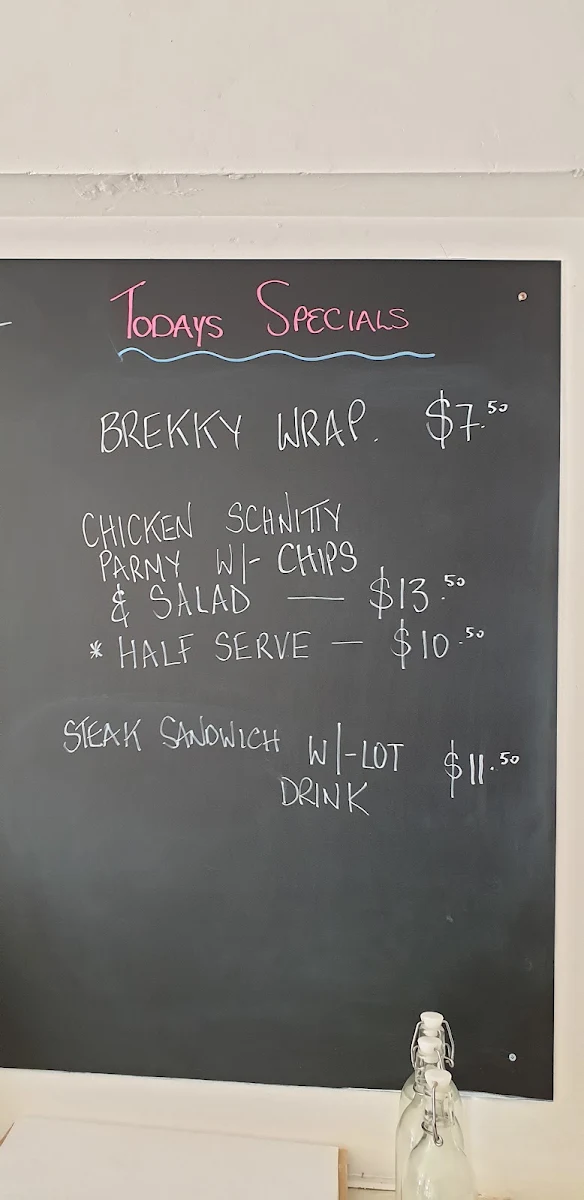 TODAYS SPECIALS
BREKKY WRAP. $7.50
CHICKEN SCHNITTY
PARMY W/- CHIPS
& SALAD — $13.50
* HALF SERVE — $10.50
STEAK SANDWICH W/-LOT $11.50
DRINK